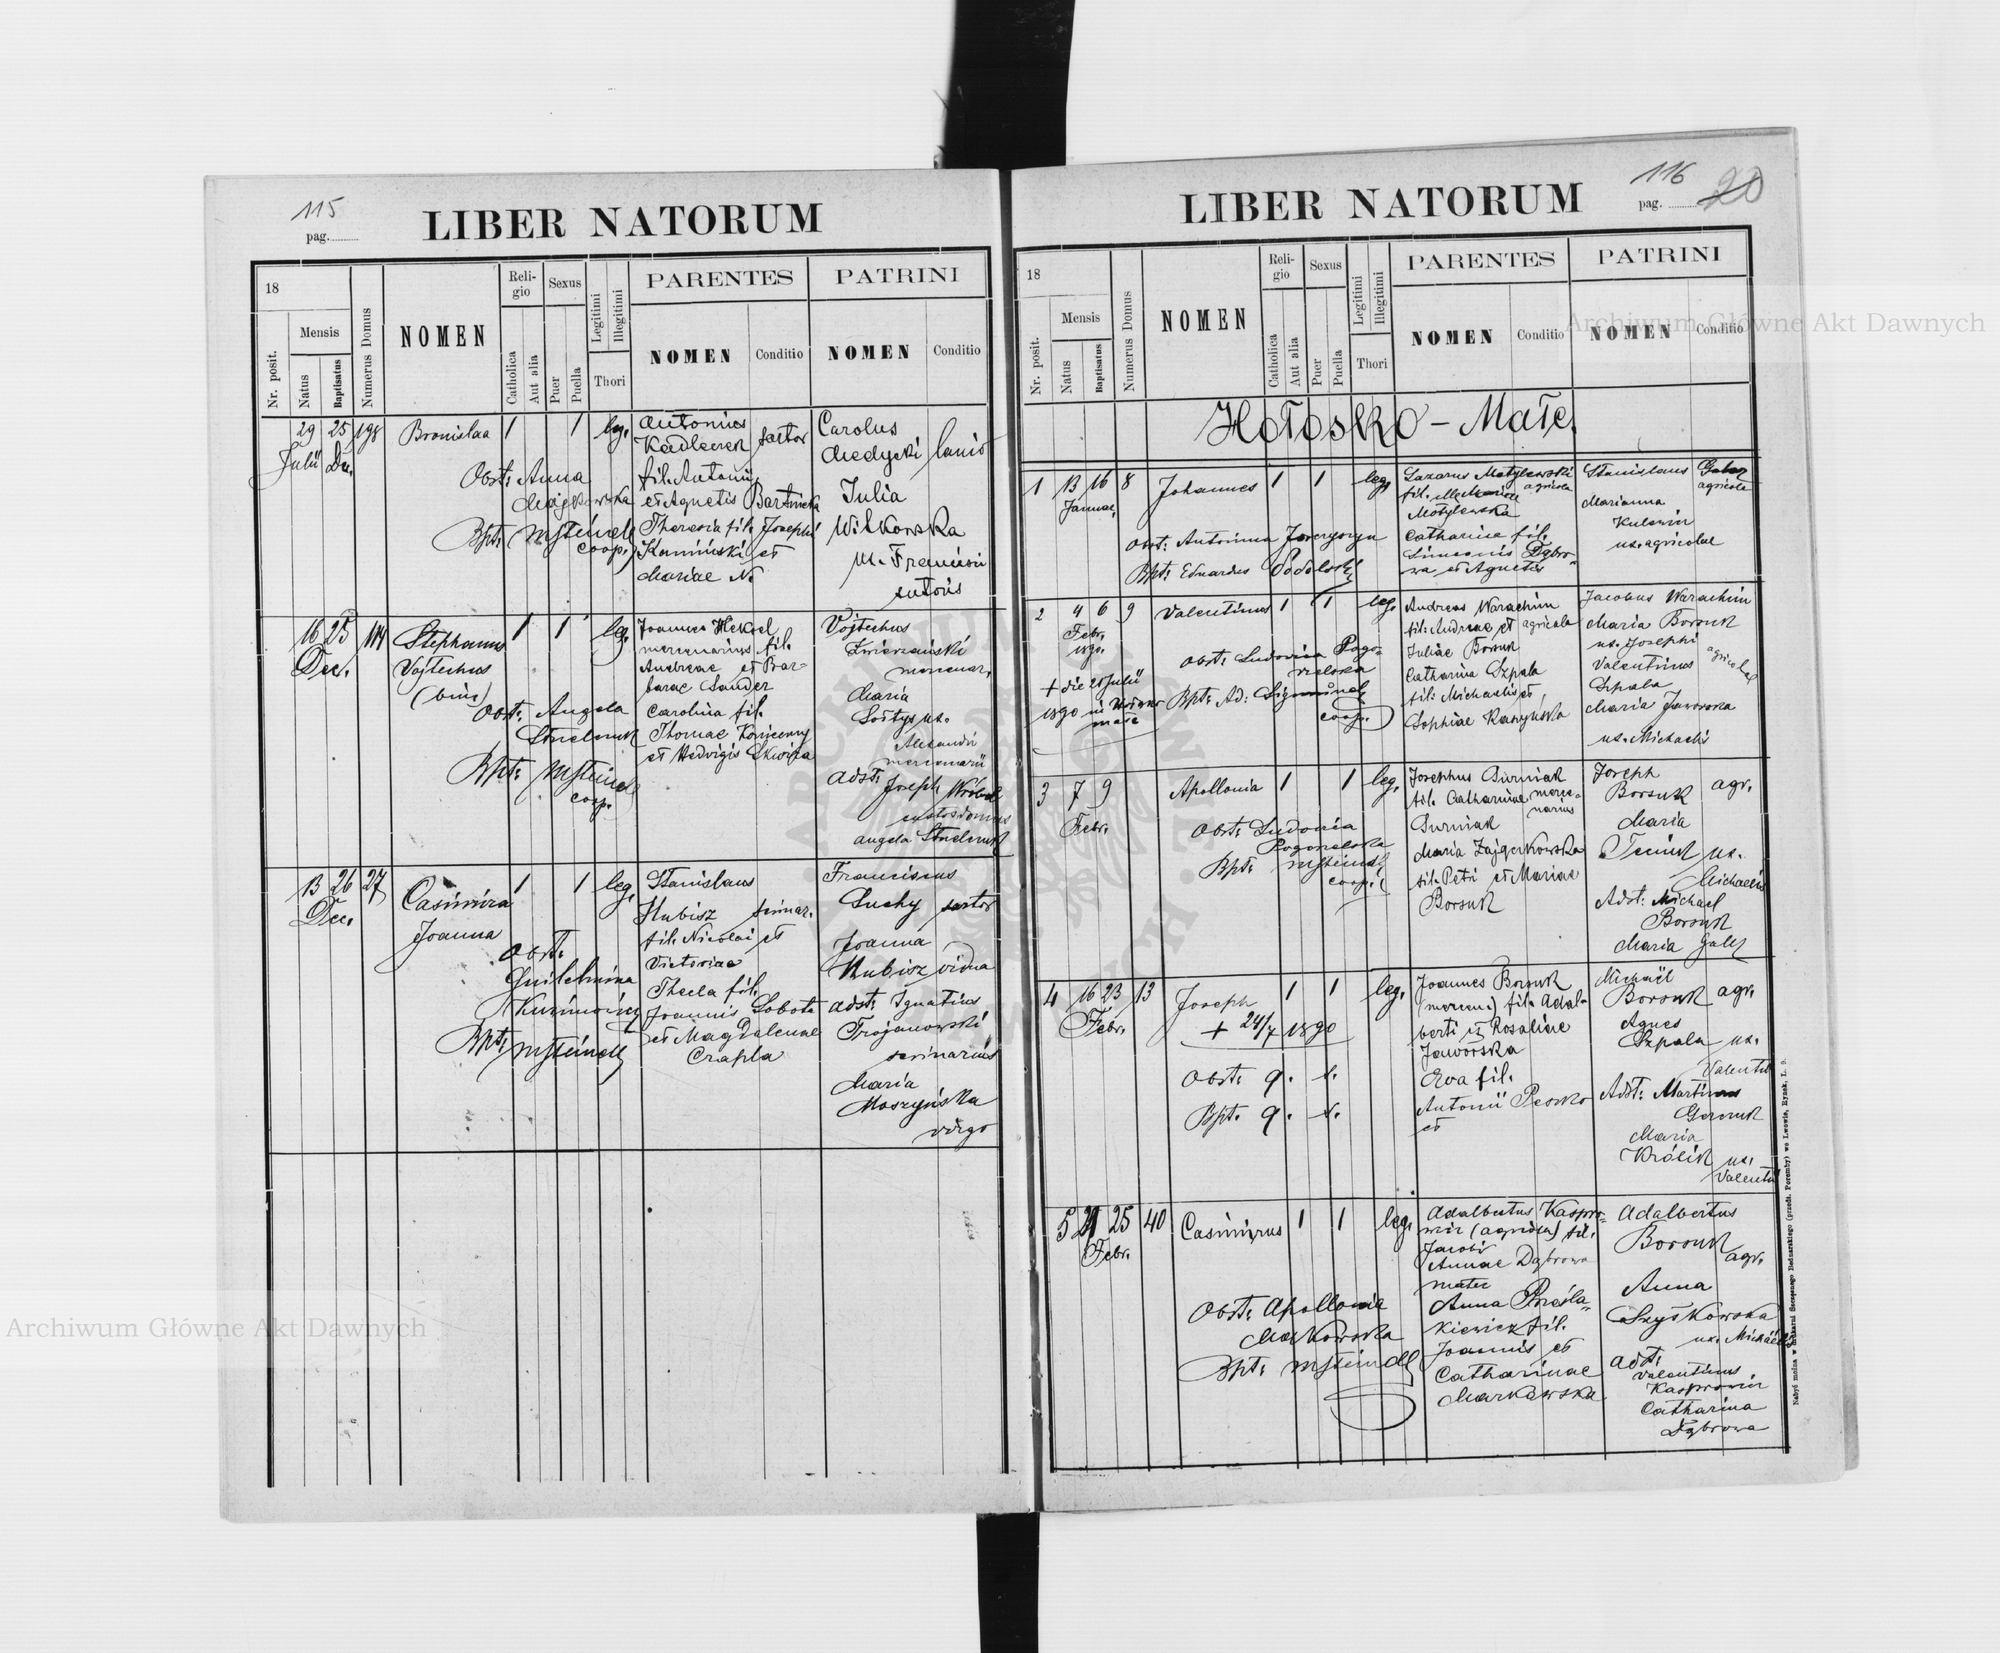 115
pag.
LIBER NATORUM
18
Nr. posit.
Mensis
Natus
Baptisatus
Numerus Domus
NOMEN
Religio
Catholica
Aut alia
Sexus
Puer
Puella
Legitimi
Illegitimi
Thori
PARENTES
NOMEN
Conditio
PATRINI
NOMEN
Conditio
29 25 198 Bronislaa 1 1 leg.
Julii Dec.
Obst: Anna
Bpt: MSteindl
coop.
Antonius
Kadlecek sartor
fil. Antonii
et Agnetis
Theresia fil. Josephi
Kaminski et
Mariae N.
Carolus
Medycki lanio
Julia
Witkowska
ux. Francisci
sutoris
16 25 114 Stephanus 1 1 leg.
Dec.
Vojtechus
(bini)
Obst. Angela
Bpt: MSteindl
coop.
Joannes
mercenarius fil.
Andreae et Bar-
barae Sander
Carolina fil.
Thomae
et Hedvigis
Vojtechus
mercenar.
Maria
Sołtys ux.
Alexandri
mercenarii
Adst: Joseph Wróbel
custos domus
Angela
13 26 27 Casimira 1 1 leg.
Dec.
Joanna
Obst:
Guilelmina
Bpt: MSteindl
Stanislaus
Kubisz
fil. Nicolai et
Victoriae
Thecla fil.
Joannis Sobota
et Magdalenae
Czapla
Franciscus
Suchy sartor
Joanna
Kubisz vidua
Adst: Ignatius
Trojanowski
Maria
Moszyńska
virgo
116
20
pag.
LIBER NATORUM
18
Nr. posit.
Mensis
Natus
Baptisatus
Numerus Domus
NOMEN
Religio
Catholica
Aut alia
Sexus
Puer
Puella
Legitimi
Illegitimi
Thori
PARENTES
NOMEN
Conditio
PATRINI
NOMEN
Conditio
Hołosko - Małe.
1 13 16 8 Johannes 1 1 leg.
Januar.
Obst: Antonina
Bpt: Eduardus Podolski
Lazarus Motylewski
fil. Mariae agricola
Motylewska
Catharina fil.
Simeonis Dąbro-
wa et Agnetis
Stanislaus
agricola
Marianna
ux. agricolae
2 4 6 9 Valentinus 1 1 leg.
Febr.
1890.
+ die 20 Julii
1890 in Hołosko
małe
Obst: Ludovica Pogo-
rielska
Bpt: Ad:
coop.
Andreas Warachim
fil: Andreae et agricola
Juliae Borsuk
Catharina Szpala
fil: Michaelis et
Sophiae
Jacobus Warachim
Maria Borsuk
ux. Josephi
Valentinus agricolae
Szpala
Maria Jaworska
ux. Michaelis
3 7 9 Apollonia 1 1 leg.
Febr.
Obst: Ludovica
Pogorielska
Bpt: MSteindl
coop.
Josephus Burniak
fil. Catharinae merce-
narius
Burniak
Maria
fil. Petri et Mariae
Borsuk
Joseph
Borsuk agr.
Maria
ux.
Michaelis
Adst: Michael
Borsuk
Maria
4 16 23 13 Joseph 1 1 leg.
Febr.
+ 24/7 1890
Obst: q. s.
Bpt. q. s.
Joannes Borsuk
(mercen.) fil. Adal-
berti et Rosaliae
Jaworska
Eva fil.
Antonii
et
Michaël
Borsuk agr.
Agnes
Szpala ux.
Valentini
Adst: Martinus
Maria
Królik ux.
Valentini
5 21 25 40 Casimirus 1 1 leg.
Febr.
Obst: Apollonia
Markowska
Bpt: MSteindl
Adalbertus Kaspro-
wicz (agricola) fil.
Jacobi
Annae Dąbrowa
mater
Anna
kiewicz fil.
Joannis et
Catharinae
Markowska
Adalbertus
Borsuk
agr.
Anna
Szyszkowska
ux. Michaëlis
Adst:
Valentinus
Kasprowicz
Catharina
Dąbrowa
Nabyć można w drukarni Szczęsnego Bednarskiego (przedt. Poremby) we Lwowie, Rynek, L. 9.
Archiwum Główne Akt Dawnych
Archiwum Główne Akt Dawnych